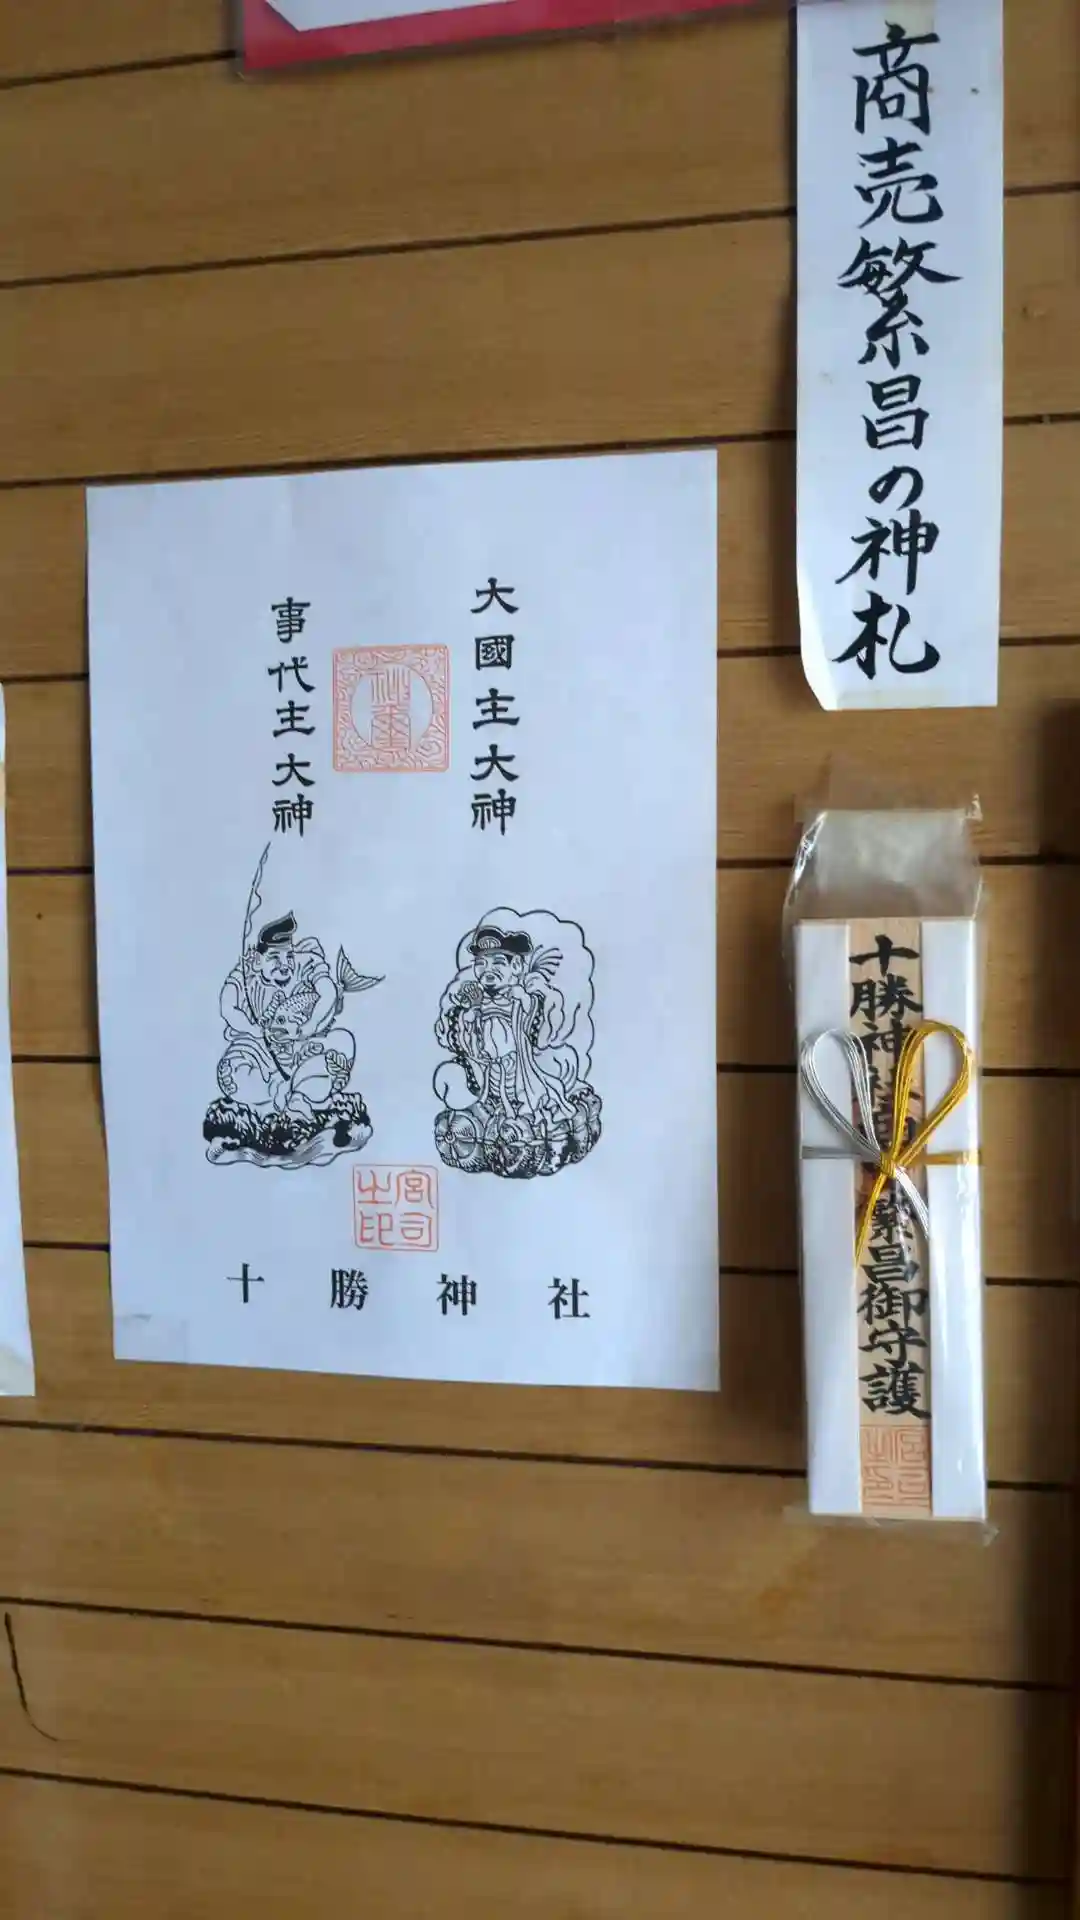 商売繁昌の神札
大國主大神
事代主大神
神璽
宮司之印
十勝神社
十勝神社商 繁昌御守護
宮司之印